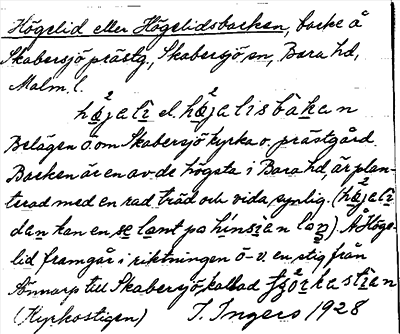 Högelid eller Högelidsbacken, backe å
Skabersjö prästg., Skabersjö sn, Bara hd,
Malm. l.
hø̂jali el. hø̂jalisbákan
Belägen ö. om Skabersjö kyrka o. prästgård.
Backen är en av de högsta i Bara hd, är plan-
terad med en rad träd och vida synlig. (hø̂jali
dan kan en se lant po hinsian lan) Å Höge-
lid framgår i riktningen ö-v. en stig från
Sönnarp till Skabersjö, kallad
(Kyrkostigen) I. Ingers 1928